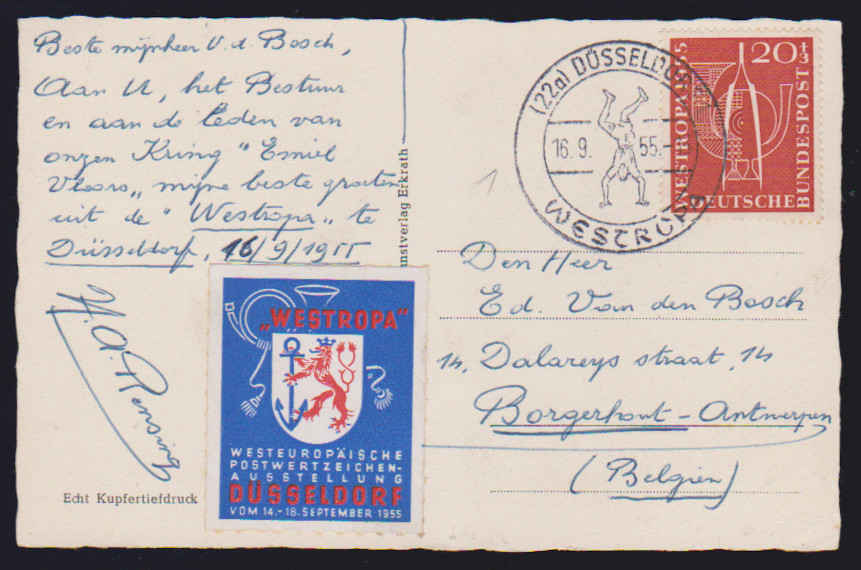 Beste mijnheer V. d. Bosch,
Aan U, het Bestuur
en aan de Leden van
onzen Kring "Emiel
Vloors" mijne beste groeten
uit de "Westropa" te
Düsseldorf, 16/9/1955
Echt Kupfertiefdruck
"WESTROPA"
WESTEUROPÄISCHE
POSTWERTZEICHEN-
AUSSTELLUNG
DÜSSELDORF
VOM 14.-18. SEPTEMBER 1955
nstverlag Erkrath
(22a) DÜSSELDORF
16.9. 55.
WESTROPA
WESTROPA 1955
20+3
DEUTSCHE
BUNDESPOST
1
Den Heer
Ed. Van den Bosch
14, Dalareys straat, 14
Borgerhout - Antwerpen
(Belgien)